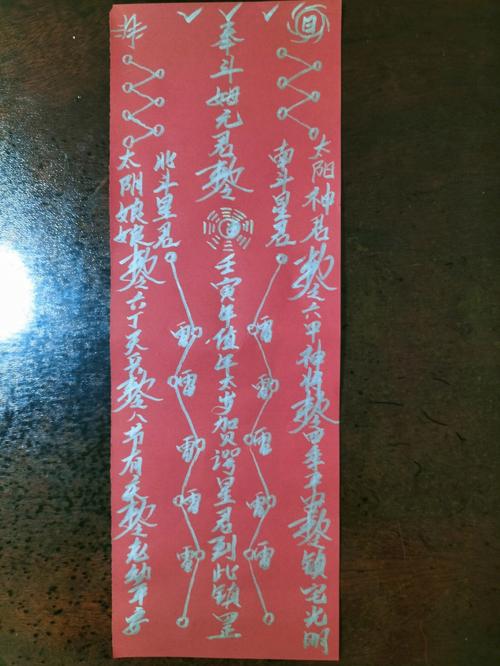 日
太阳神君敕令六甲神将敕令四季平安敕令镇宅光明
南斗星君
雷
雷
雷
雷
雷
奉斗姆元君敕令
壬寅年值年太岁贺谔星君到此镇罡
雷
雷
雷
雷
雷
北斗星君
月
太阴娘娘敕令六丁天兵敕令八节有庆敕令老幼平安